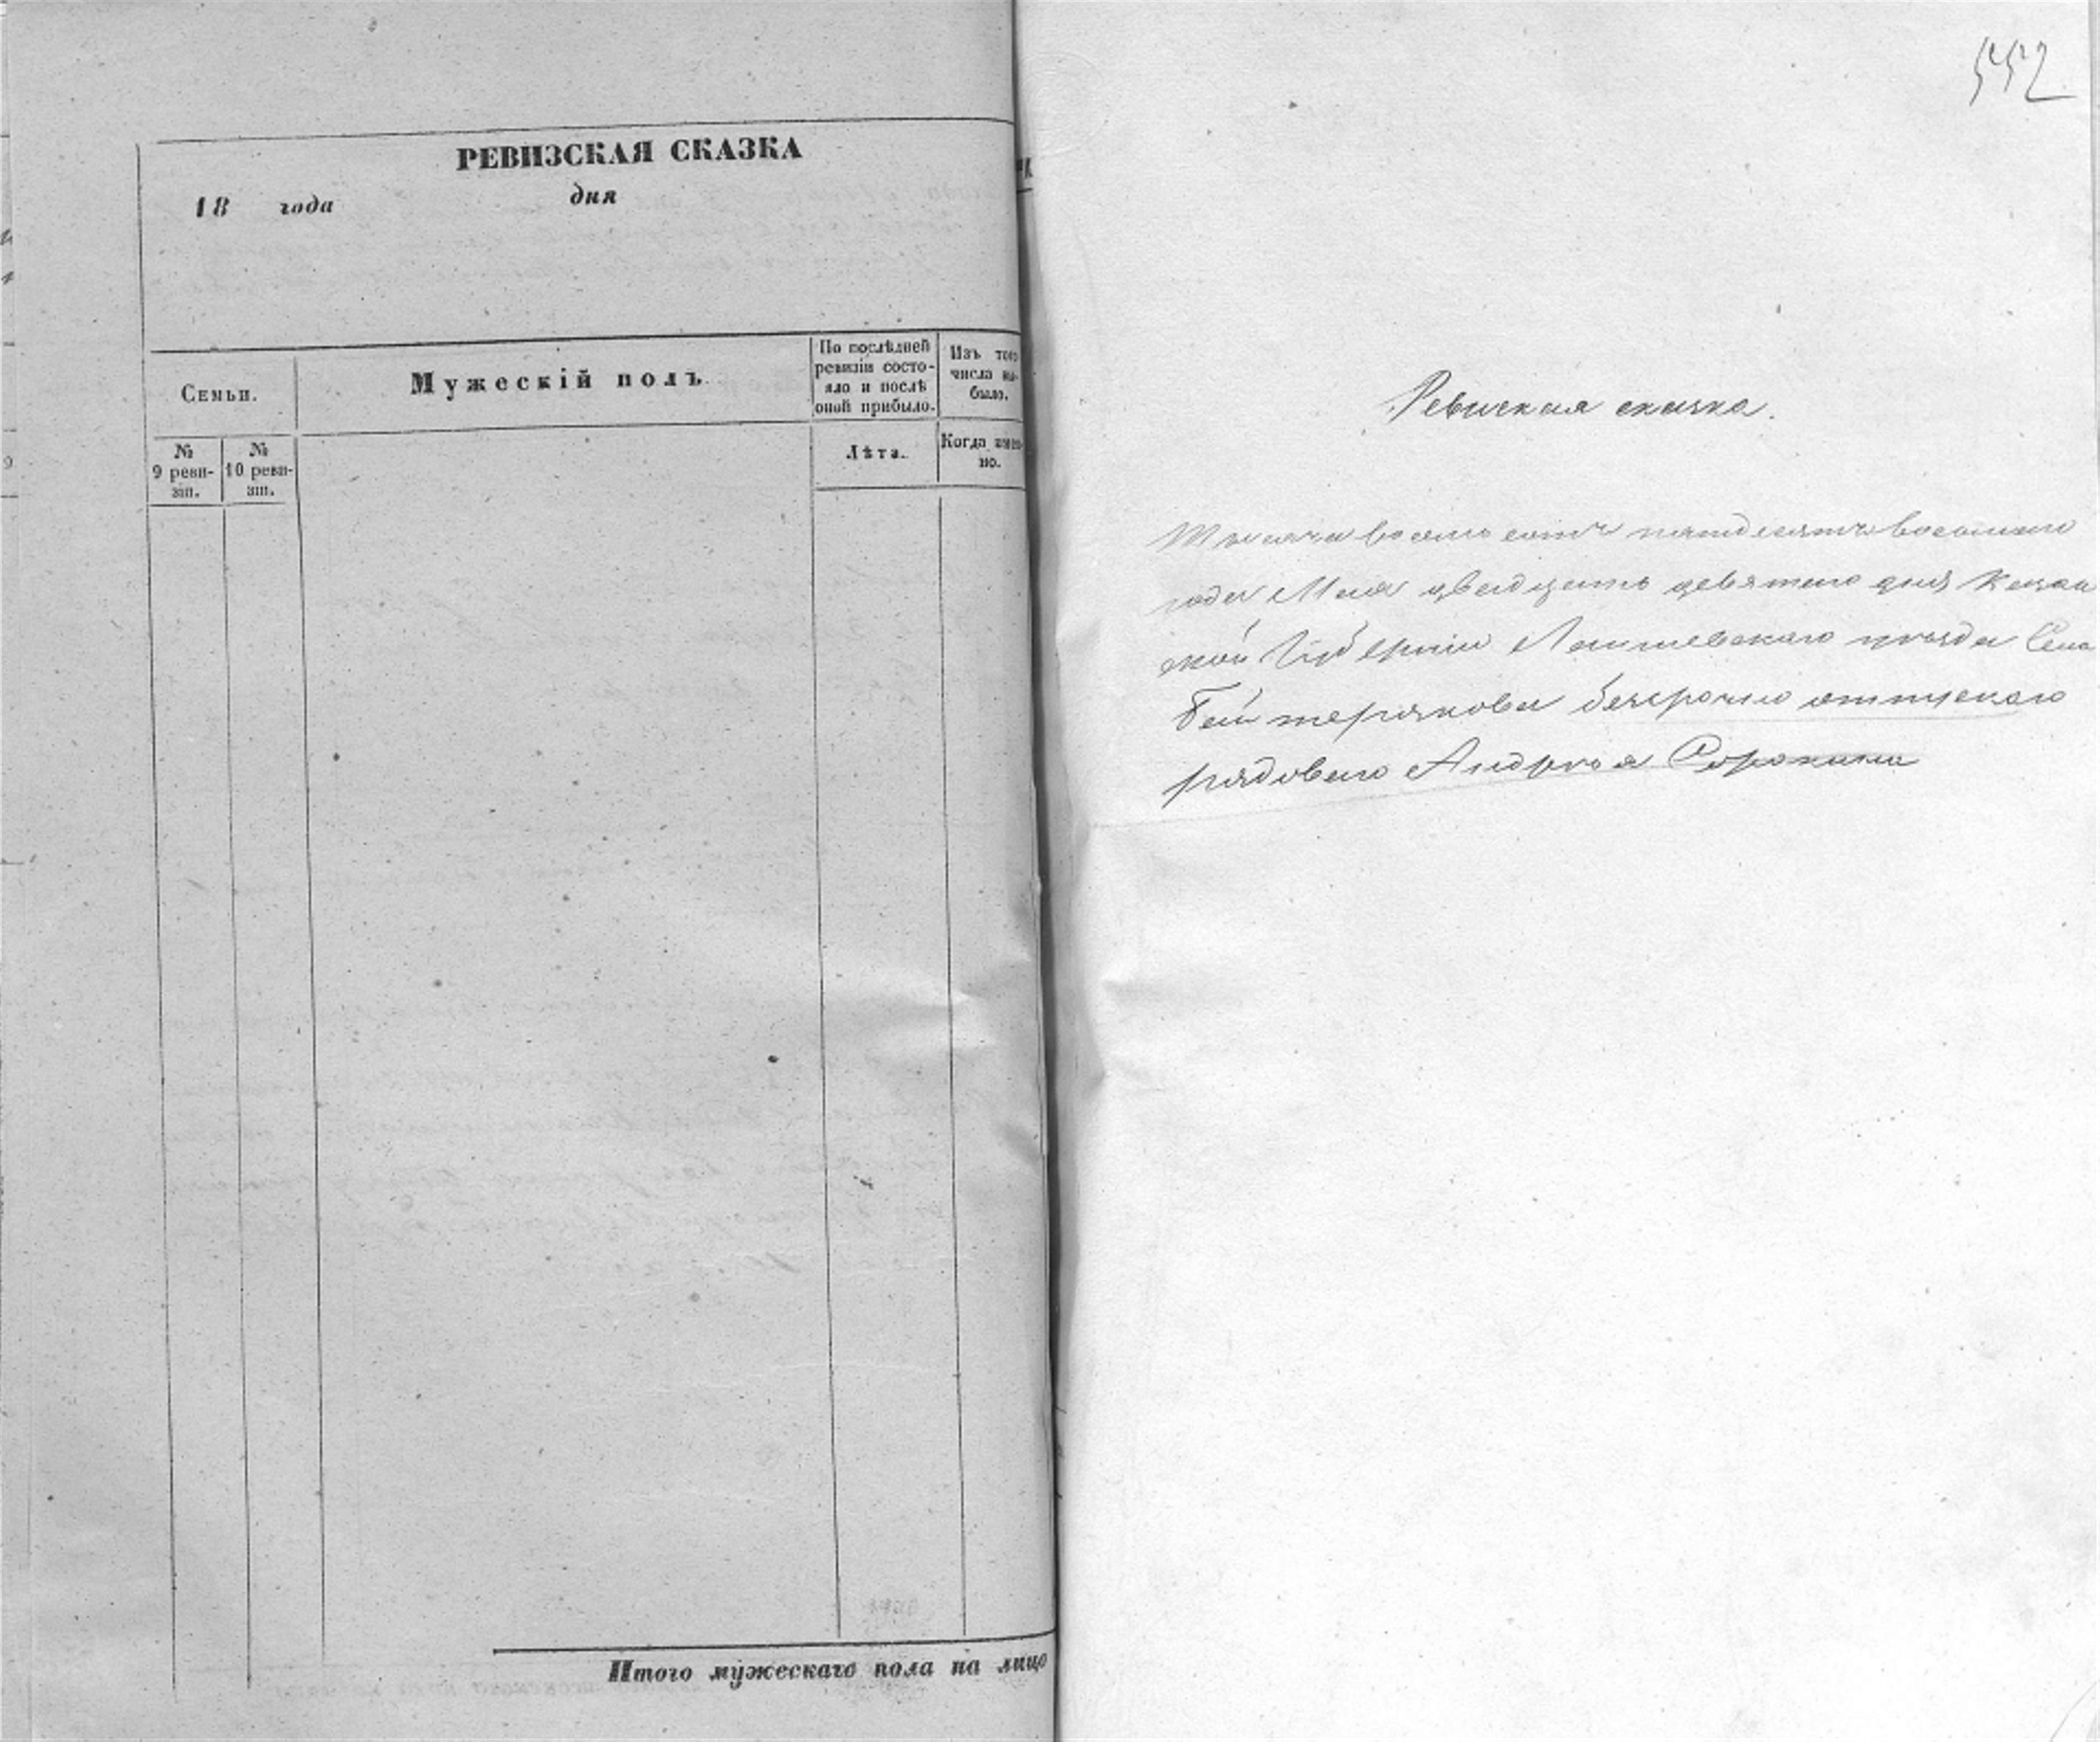 РЕВИЗСКАЯ СКАЗКА
18 года дня
Семьи.
Мужескій полъ
По послѣдней
ревизіи состо-
яло и послѣ
оной прибыло.
Изъ того
числа вы-
было.
№
9 реви-
зіи.
№
10 реви-
зіи.
Лѣта.
Когда имен-
но.
Итого мужескаго пола на лицо
552
Ревиская сказка.
Тысяча восемь сотъ пятдесятъ восьмаго
года Мая двадцать девятаго дня Казан
ской Губерніи Лаишевскаго уѣзда Села
Бейтерякова безсрочно отпускаго
рядоваго Андрѣя Сорокина